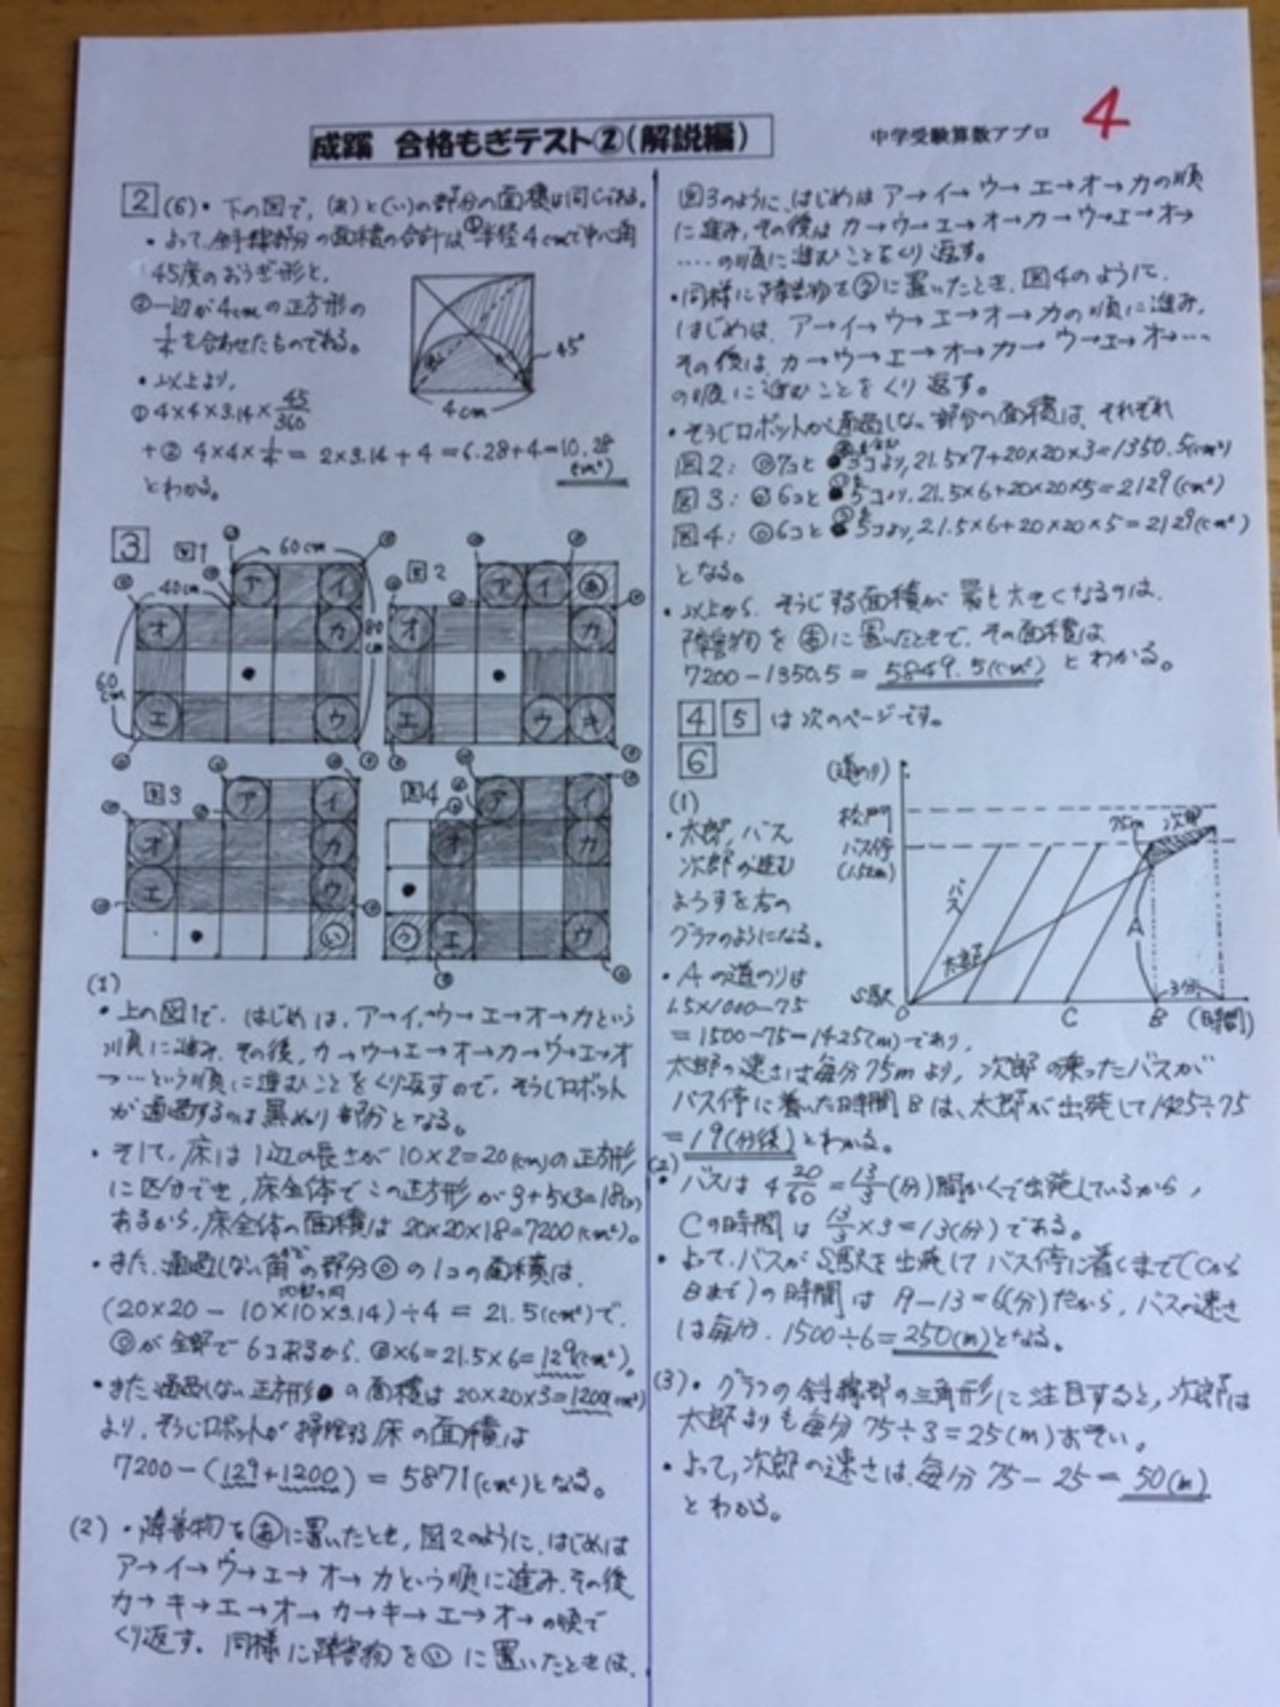 成蹊 合格もぎテスト②(解説編)
中学受験算数アプロ
4
2 (6)・下の図で、(あ)と(い)の部分の面積は同じである。
・よって、斜線部分の面積の合計は①半径4cmで中心角
45度のおうぎ形と、
②一辺が4cmの正方形の
1/4を合わせたものである。
・以上より、
①4×4×3.14×45/360
+② 4×4×1/4= 2×3.14+4=6.28+4=10.28
(cm²)
とわかる。
45°
4cm
3 図1
60cm
40cm
80cm
60cm
ア イ
オ カ
エ ウ
図2
ア イ あ
オ カ
エ ウ キ
図3
ア イ
オ カ
エ ウ
い
図4
ア イ
オ カ
う エ ウ
(1)
・上の図1で、はじめは、ア→イ→ウ→エ→オ→カという
順に進み、その後、カ→ウ→エ→オ→カ→ウ→エ→オ
→…という順に進むことをくり返すので、そうじロボット
が通過するのは黒ぬり部分となる。
・そして、床は1辺の長さが10×2=20(cm)の正方形
に区分でき、床全体でこの正方形が3+5×3=18(コ)
あるから、床全体の面積は20×20×18=7200(cm²)。
・また、通過しない角の部分◎の1コの面積は、
(20×20-10×10×3.14)÷4=21.5(cm²)で、
◎が全部で6コあるから、◎×6=21.5×6=129(cm²)。
・また通過しない正方形●の面積は20×20×3=1200(cm²)
より、そうじロボットが掃除する床の面積は
7200-(129+1200)=5871(cm²)となる。
(2)・障害物をあに置いたとき、図2のように、はじめは
ア→イ→ウ→エ→オ→カという順に進み、その後
カ→キ→エ→オ→カ→キ→エ→オ→の順で
くり返す。同様に障害物をいに置いたときは、
図3のように、はじめはア→イ→ウ→エ→オ→カの順
に進み、その後はカ→ウ→エ→オ→カ→ウ→エ→オ→
……の順に進むことをくり返す。
・同様に障害物をうに置いたとき、図4のように、
はじめは、ア→イ→ウ→エ→オ→カの順に進み、
その後は、カ→ウ→エ→オ→カ→ウ→エ→オ→…
の順に進むことをくり返す。
・そうじロボットが通過しない部分の面積は、それぞれ
図2:◎7コと 3コより、21.5×7+20×20×3=1350.5(cm²)
図3:◎6コと 5コより、21.5×6+20×20×5=2129(cm²)
図4:◎6コと 5コより、21.5×6+20×20×5=2129(cm²)
となる。
・以上から、そうじする面積が最も大きくなるのは、
障害物をあに置いたときで、その面積は
7200-1350.5=5849.5(cm²)とわかる。
4 5 は次のページです。
6
(1)
・太郎、バス
次郎が進む
ようすを右の
グラフのようになる。
(道のり)
校門
バス停
(1.5km)
S駅
バス
太郎
75m
次郎
A
3分
O C B (時間)
・Aの道のりは
1.5×1000-75
=1500-75=1425(m)であり、
太郎の速さは毎分75mより、次郎の乗ったバスが
バス停に着いた時間Bは、太郎が出発して1425÷75
=19(分後)とわかる。
(2)
・バスは4 20/60=13/3(分)間かくで出発しているから、
Cの時間は13/3×3=13(分)である。
・よって、バスがS駅を出発してバス停に着くまで(Cから
Bまで)の時間は19-13=6(分)だから、バスの速さ
は毎分、1500÷6=250(m)となる。
(3)・グラフの斜線部の三角形に注目すると、次郎は
太郎よりも毎分75÷3=25(m)おそい。
・よって、次郎の速さは、毎分75-25=50(m)
とわかる。